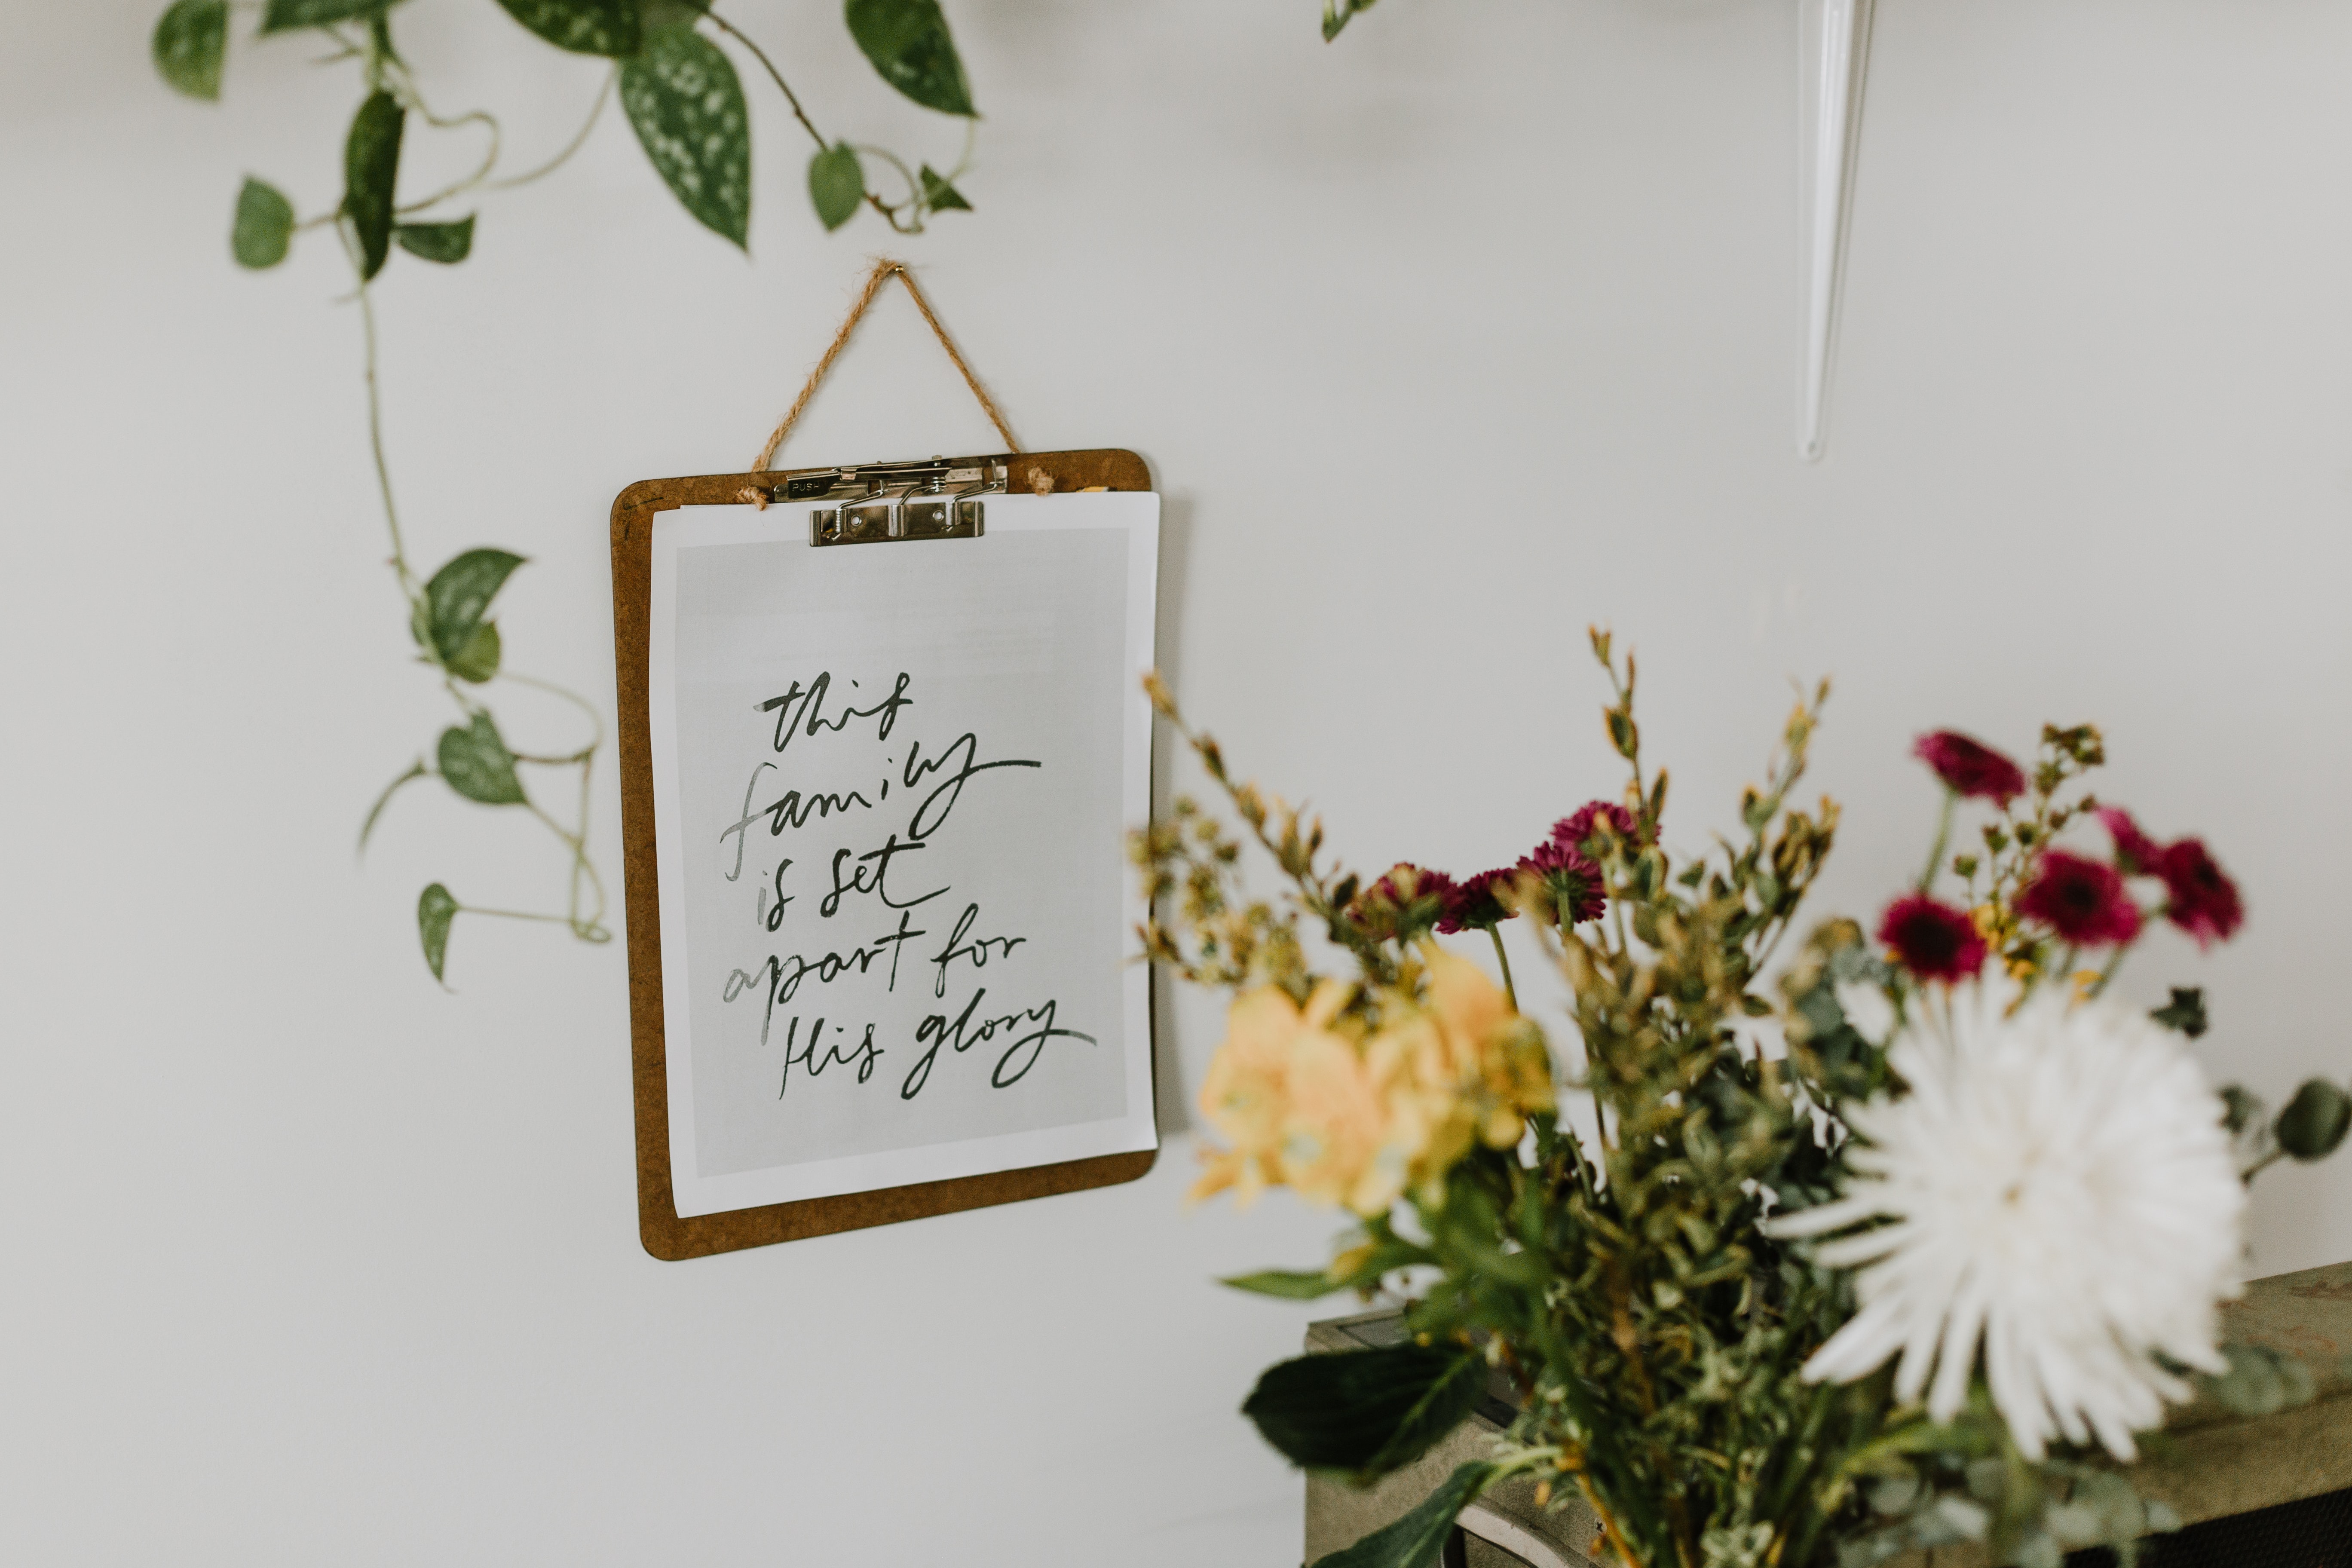 PUSH
this
family
is set
apart for
His glory